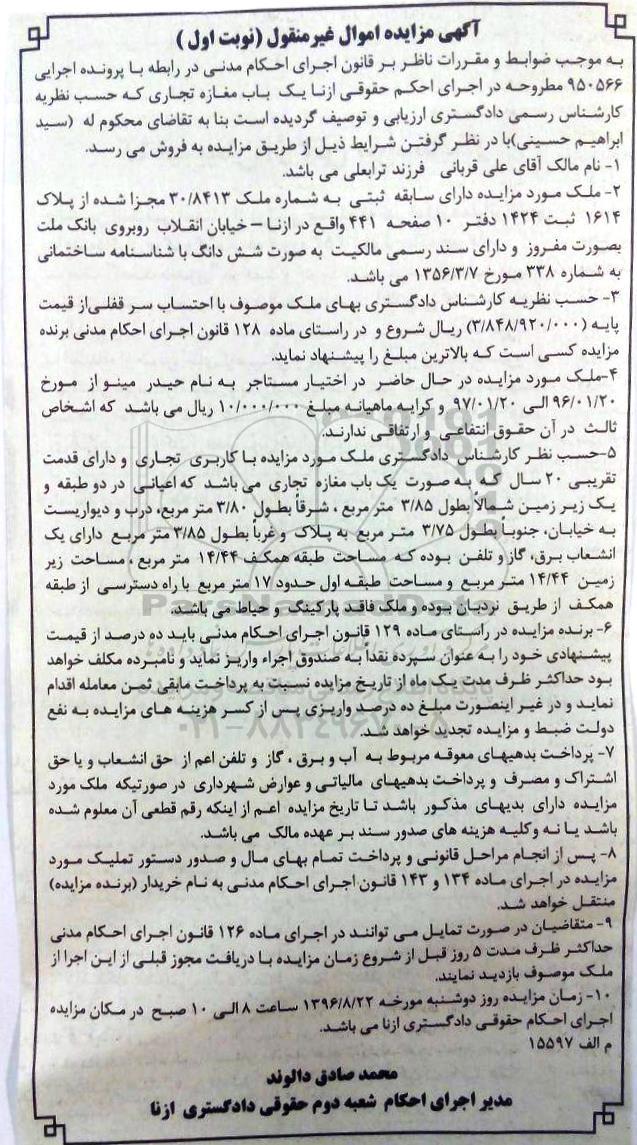 آگهی مزایده اموال غیرمنقول (نوبت اول)
به موجب ضوابط و مقررات ناظر بر قانون اجرای احکام مدنی در رابطه با پرونده اجرایی
۹۵۰۵۶۶ مطروحه در اجرای احکم حقوقی ازنا یک باب مغازه تجاری که حسب نظریه
کارشناس رسمی دادگستری ارزیابی و توصیف گردیده است بنا به تقاضای محکوم له (سید
ابراهیم حسینی)با در نظر گرفتن شرایط ذیل از طریق مزایده به فروش می رسد.
۱- نام مالک آقای علی قربانی فرزند ترابعلی می باشد.
۲- ملک مورد مزایده دارای سابقه ثبتی به شماره ملک ۳۰/۸۴۱۳ مجزا شده از پلاک
۱۶۱۴ ثبت ۱۴۲۴ دفتر ۱۰ صفحه ۴۴۱ واقع در ازنا – خیابان انقلاب روبروی بانک ملت
بصورت مفروز و دارای سند رسمی مالکیت به صورت شش دانگ با شناسنامه ساختمانی
به شماره ۳۳۸ مورخ ۱۳۵۶/۳/۷ می باشد.
۳- حسب نظریه کارشناس دادگستری بهای ملک موصوف با احتساب سر قفلی‌از قیمت
پایه (۳/۸۴۸/۹۲۰/۰۰۰) ریال شروع و در راستای ماده ۱۲۸ قانون اجرای احکام مدنی برنده
مزایده کسی است که بالاترین مبلغ را پیشنهاد نماید.
۴-ملک مورد مزایده در حال حاضر در اختیار مستاجر به نام حیدر مینو از مورخ
۹۶/۰۱/۲۰ الی ۹۷/۰۱/۲۰ و کرایه ماهیانه مبلغ ۱۰/۰۰۰/۰۰۰ ریال می باشد که اشخاص
ثالث در آن حقوق انتفاعی و ارتفاقی ندارند.
۵-حسب نظر کارشناس دادگستری ملک مورد مزایده با کاربری تجاری و دارای قدمت
تقریبی ۲۰ سال که به صورت یک باب مغازه تجاری می باشد که اعیانی در دو طبقه و
یک زیر زمین شمالاً بطول ۳/۸۵ متر مربع ، شرقاً بطول ۳/۸۰ متر مربع، درب و دیواریست
به خیابان، جنوباً بطول ۳/۷۵ متر مربع به پلاک و غرباً بطول ۳/۸۵ متر مربع دارای یک
انشعاب برق، گاز و تلفن بوده که مساحت طبقه همکف ۱۴/۴۴ متر مربع ، مساحت زیر
زمین ۱۴/۴۴ متر مربع و مساحت طبقه اول حدود ۱۷ متر مربع با راه دسترسی از طبقه
همکف از طریق نردبان بوده و ملک فاقد پارکینگ و حیاط می باشد.
۶- برنده مزایده در راستای ماده ۱۲۹ قانون اجرای احکام مدنی باید ده درصد از قیمت
پیشنهادی خود را به عنوان سپرده نقداً به صندوق اجراء واریز نماید و نامبرده مکلف خواهد
بود حداکثر ظرف مدت یک ماه از تاریخ مزایده نسبت به پرداخت مابقی ثمن معامله اقدام
نماید و در غیر اینصورت مبلغ ده درصد واریزی پس از کسر هزینه های مزایده به نفع
دولت ضبط و مزایده تجدید خواهد شد.
۷- پرداخت بدهیهای معوقه مربوط به آب و برق ، گاز و تلفن اعم از حق انشعاب و یا حق
اشتراک و مصرف و پرداخت بدهیهای مالیاتی و عوارض شهرداری در صورتیکه ملک مورد
مزایده دارای بدیهای مذکور باشد تا تاریخ مزایده اعم از اینکه رقم قطعی آن معلوم شده
باشد یا نه وکلیه هزینه های صدور سند بر عهده مالک می باشد.
۸- پس از انجام مراحل قانونی و پرداخت تمام بهای مال و صدور دستور تملیک مورد
مزایده در اجرای ماده ۱۳۴ و ۱۴۳ قانون اجرای احکام مدنی به نام خریدار (برنده مزایده)
منتقل خواهد شد.
۹- متقاضیان در صورت تمایل می توانند در اجرای ماده ۱۲۶ قانون اجرای احکام مدنی
حداکثر ظرف مدت ۵ روز قبل از شروع زمان مزایده با دریافت مجوز قبلی از این اجرا از
ملک موصوف بازدید نمایند.
۱۰- زمان مزایده روز دوشنبه مورخه ۱۳۹۶/۸/۲۲ ساعت ۸ الی ۱۰ صبح در مکان مزایده
اجرای احکام حقوقی دادگستری ازنا می باشد.
م الف ۱۵۵۹۷
محمد صادق دالوند
مدیر اجرای احکام شعبه دوم حقوقی دادگستری ازنا